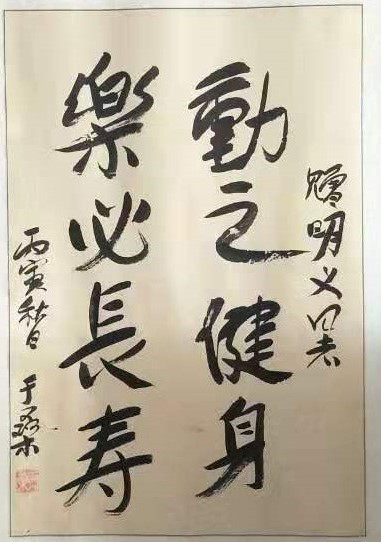 贈明义同志
動之健身
樂必長寿
丙寅秋日 于若木